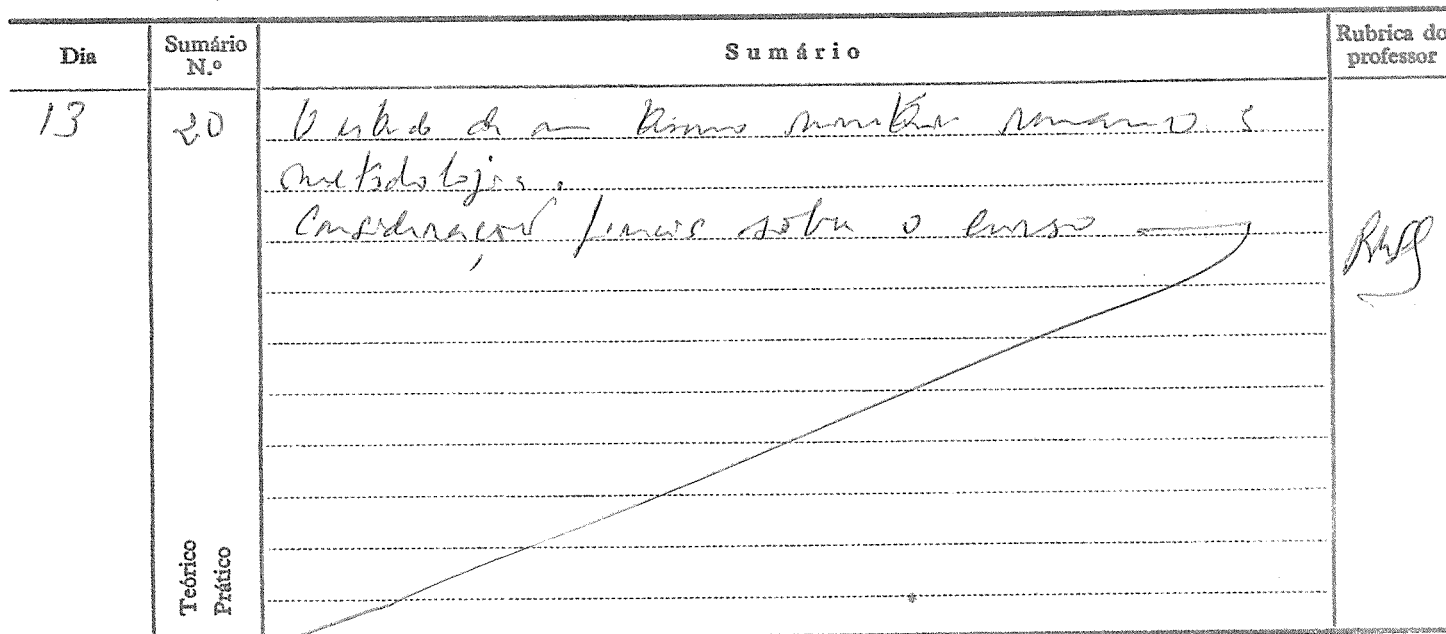 Dia
Sumário N.º
Sumário
Rubrica do professor
13
20
O estudo de um
metodologia.
Considerações finais sobre o curso
Teórico
Prático